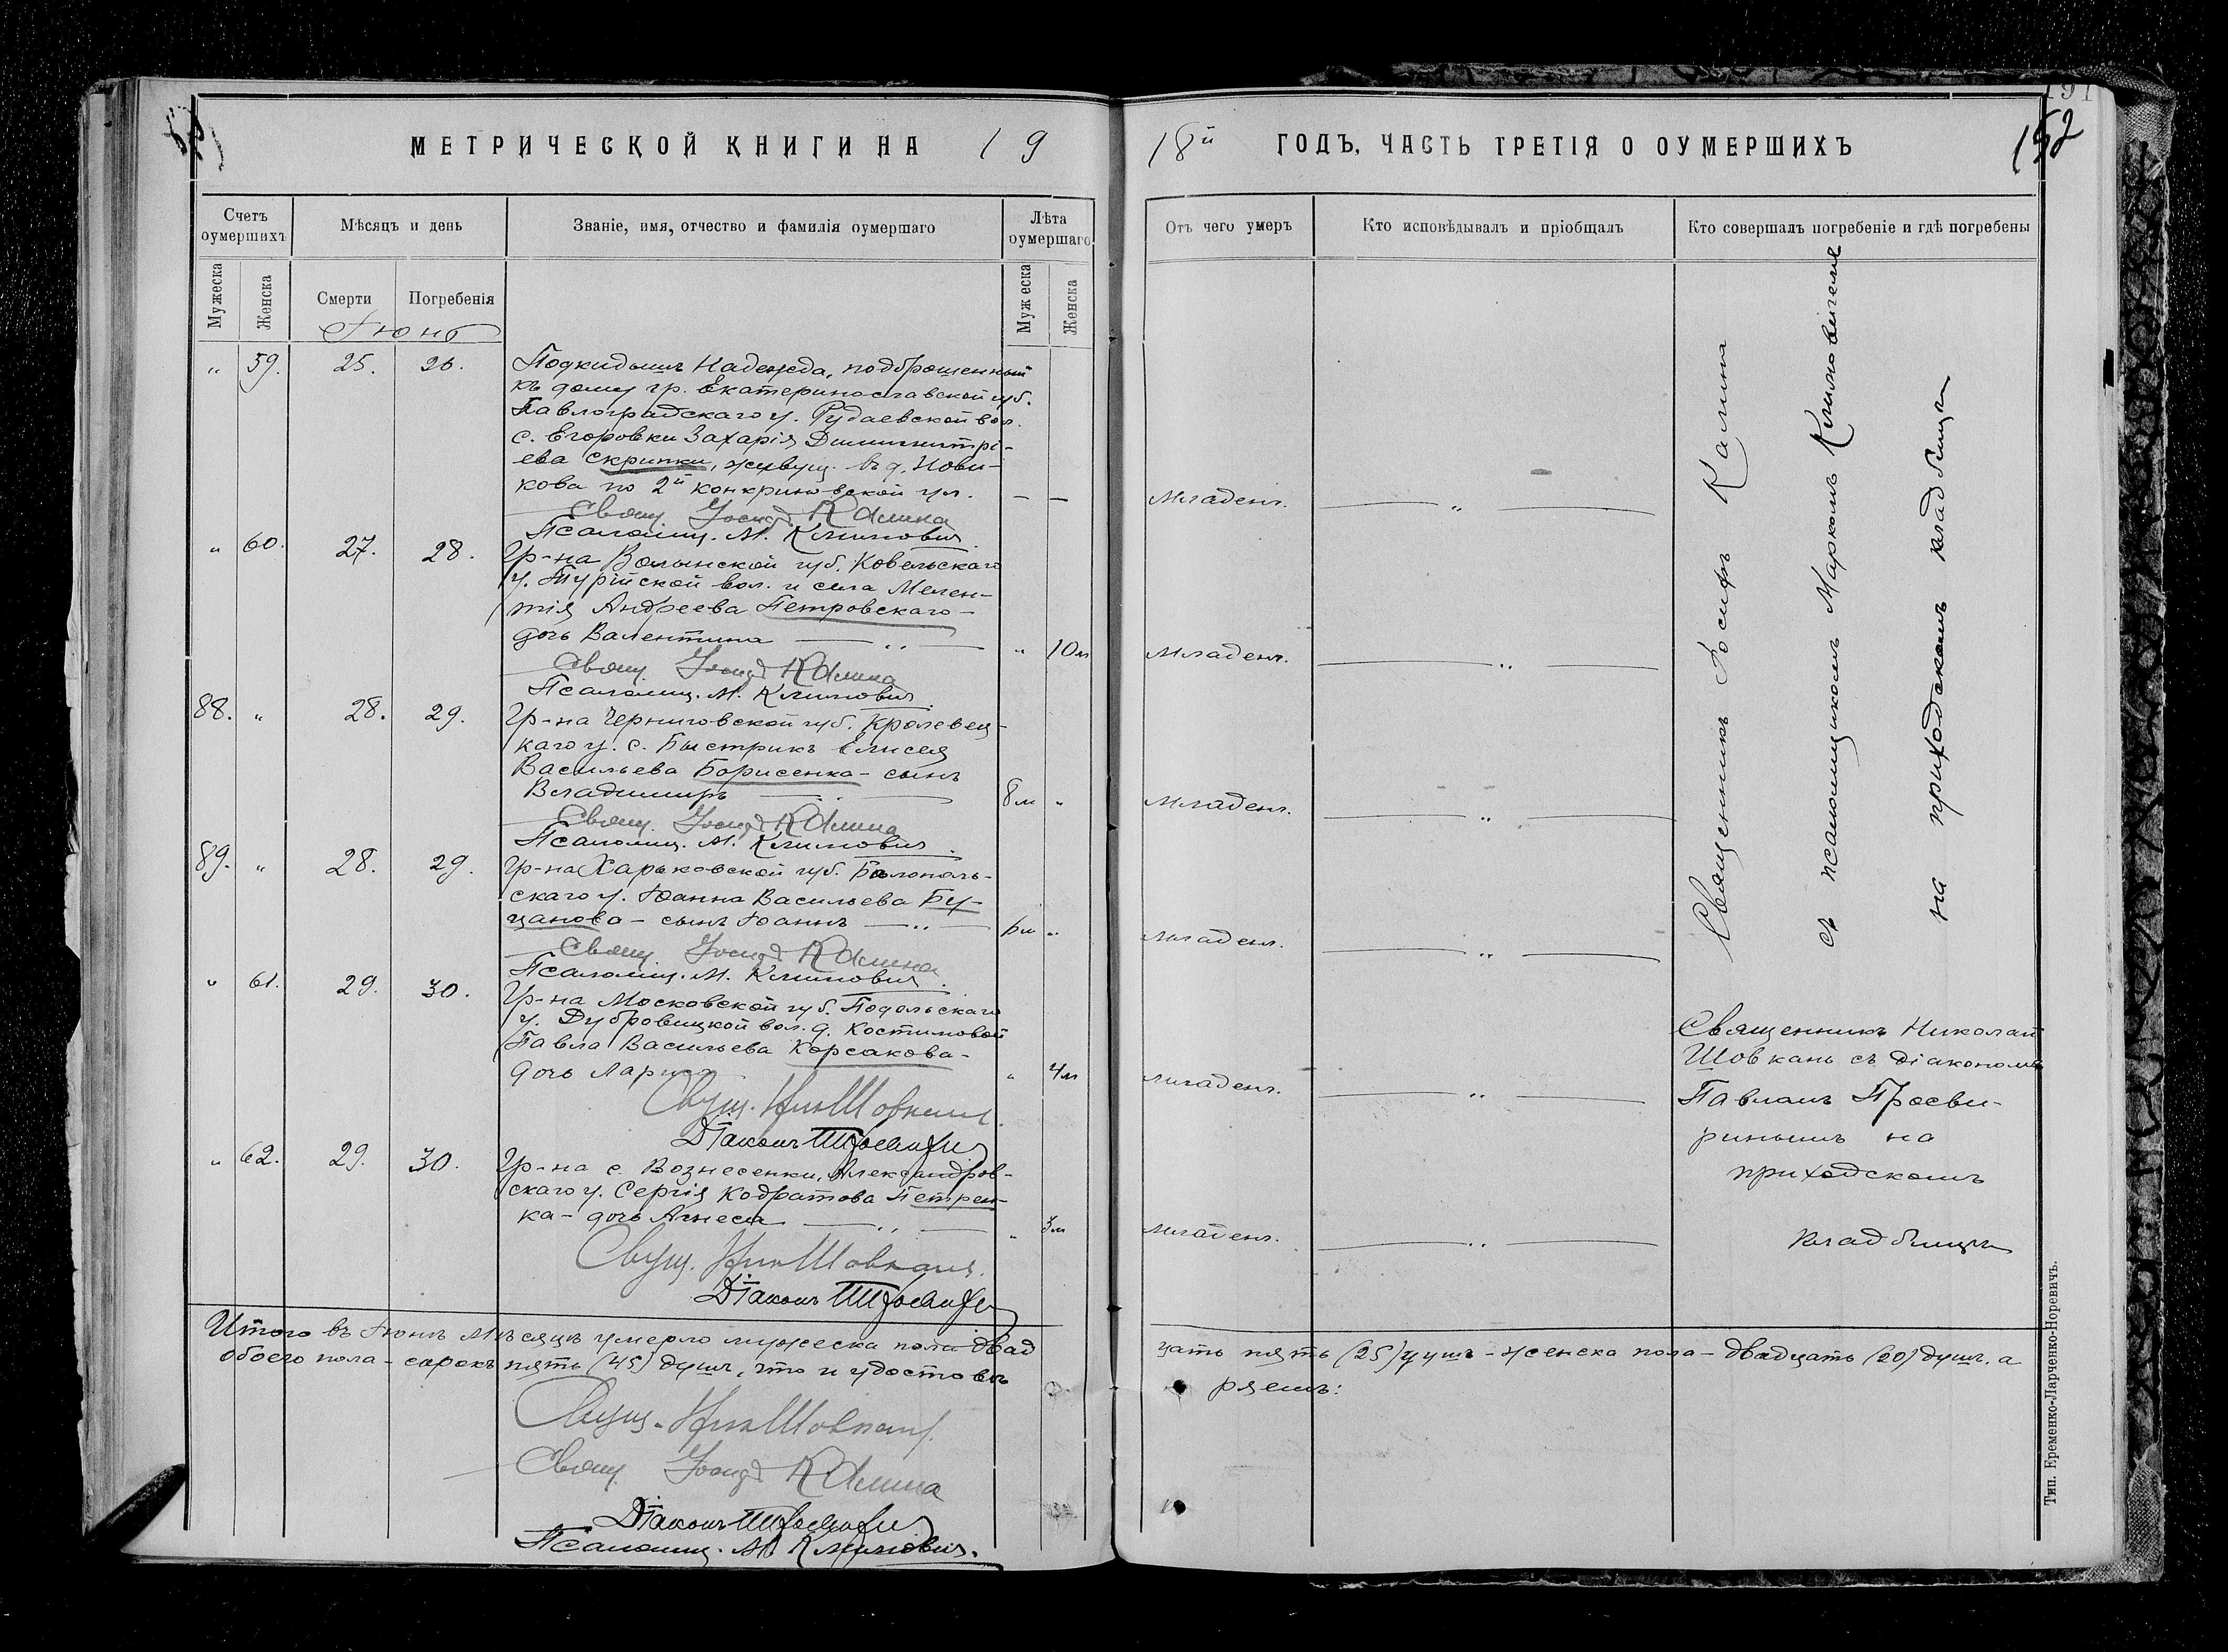 МЕТРИЧЕСКОЙ КНИГИ НА 19
18й ГОДЪ, ЧАСТЬ ТРЕТІЯ О ОУМЕРШИХЪ
152
Счетъ оумершихъ
Мѣсяцъ и день
Званіе, имя, отчество и фамилія оумершаго
Лѣта оумершаго
Отъ чего умеръ
Кто исповѣдывалъ и пріобщалъ
Кто совершалъ погребеніе и гдѣ погребены
Мужеска
Женска
Смерти
Погребенія
Мужеска
Женска
Іюнь
„ 59. 25. 26. Подкидышъ Надежда, подброшенный
къ дому гр. Екатеринославской губ.
Павлоградскаго у. Рудаевской вол.
с. Егоровки Захарія Димитрі-
ева Скрипки, живущ. въ д. Нови-
кова по 2й конкриновской ул. — — Младенч. „
Свящ. Іосифъ Калина
Псаломщ. М. Климович.
„ 60. 27. 28. Гр-на Волынской губ. Ковельскаго
у. Турійской вол. и села Мелен-
тія Андреева Петровскаго —
дочь Валентина „ 10м Младенч. „
Свящ. Іосифъ Калина
Псаломщ. М. Климович.
88. „ 28. 29. Гр-на Черниговской губ. Кролевец-
каго у. с. Быстрикъ Елисея
Васильева Борисенка — сынъ
Владимиръ 8м „ Младенч. „
Свящ. Іосифъ Калина
Псаломщ. М. Климович.
89. „ 28. 29. Гр-на Харьковской губ. Бѣлополь-
скаго у. Іоанна Васильева Бу-
цанова — сынъ Іоаннъ 6м „ Младенч. „
Свящ. Іосифъ Калина
Псаломщ. М. Климович.
Священникъ Іосифъ Калина
съ псаломщикомъ Маркомъ Климовичемъ
на приходскомъ кладбищѣ
„ 61. 29. 30. Гр-на Московской губ. Подольскаго
у. Дубровицкой вол. д. Костиновой
Павла Васильева Корсакова —
дочь Лариса „ 4м Младенч. „
Свящ. Ник Шовкань
Діаконъ П Просвирин
„ 62. 29. 30. Гр-на с. Вознесенки, Александров-
скаго у. Сергія Кодратова Петрен-
ка — дочь Агнеса „ 3м Младенч. „
Свящ. Ник Шовкань.
Діаконъ П Просвирин
Священникъ Николай
Шовкань съ діакономъ
Павломъ Просви-
ринымъ на
приходскомъ
кладбищѣ
Итого въ Іюнѣ мѣсяцѣ умерло мужеска пола двад
цать пять (25) душъ — женска пола — двадцать (20) душъ. а
обоего пола — сорокъ пять (45) душъ, что и удостовѣ
ряемъ:
Свящ. Ник Шовкань.
Свящ. Іосифъ Калина
Діаконъ П Просвирин
Псаломщ. М. Климович.
Тип. Еременко-Ларченко-Норевичъ.